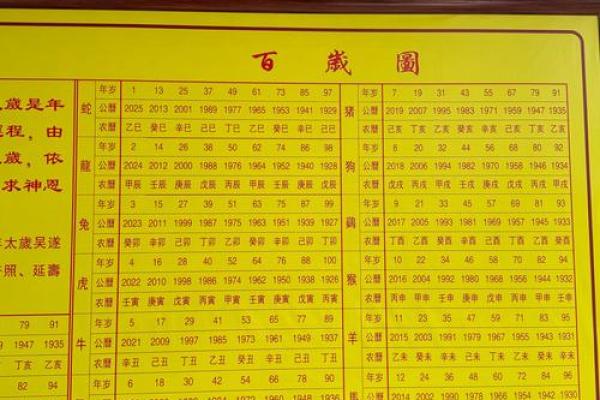 百歲圖
歲是年
程，由
歲，依
求神恩
太歲吴遂
照、延壽
79 91
1947 1935
丁亥 乙亥
82 94
蛇
年岁 1 13 25 37 49 61 73 85 97
公曆 2025 2013 2001 1989 1977 1965 1953 1941 1929
农曆 乙巳 癸巳 辛巳 己巳 丁巳 乙巳 癸巳 辛巳 己巳
龍
年岁 2 14 26 38 50 62 74 86 98
公曆 2024 2012 2000 1988 1976 1964 1952 1940 1928
农曆 甲辰 壬辰 庚辰 戊辰 丙辰 甲辰 壬辰 庚辰 戊辰
兔
年岁 3 15 27 39 51 63 75 87 99
公曆 2023 2011 1999 1987 1975 1963 1951 1939 1927
农曆 癸卯 辛卯 己卯 丁卯 乙卯 癸卯 辛卯 己卯 丁卯
虎
年岁 4 16 28 40 52 64 76 88 100
公曆 2022 2010 1998 1986 1974 1962 1950 1938 1926
农曆 壬寅 庚寅 戊寅 丙寅 甲寅 壬寅 庚寅 戊寅 丙寅
牛
年岁 5 17 29 41 53 65 77 89
公曆 2021 2009 1997 1985 1973 1961 1949 1937
农曆 辛丑 己丑 丁丑 乙丑 癸丑 辛丑 己丑 丁丑
年岁 6 18 30 42 54 66 78 90
猪
年岁 7 19 31 43 55 67 79 91
公曆 2019 2007 1995 1983 1971 1959 1947 1935
农曆 己亥 丁亥 乙亥 癸亥 辛亥 己亥 丁亥 乙亥
狗
年岁 8 20 32 44 56 68 80 92
公曆 2018 2006 1994 1982 1970 1958 1946 1934
农曆 戊戌 丙戌 甲戌 壬戌 庚戌 戊戌 丙戌 甲戌
鷄
年岁 9 21 33 45 57 69 81 93
公曆 2017 2005 1993 1981 1969 1957 1945 1933
农曆 丁酉 乙酉 癸酉 辛酉 己酉 丁酉 乙酉 癸酉
猴
年岁 10 22 34 46 58 70 82 94
公曆 2016 2004 1992 1980 1968 1956 1944 1932
农曆 丙申 甲申 壬申 庚申 戊申 丙申 甲申 壬申
羊
年岁 11 23 35 47 59 71 83 95
公曆 2015 2003 1991 1979 1967 1955 1943 1931
农曆 乙未 癸未 辛未 己未 丁未 乙未 癸未 辛未
年岁 12 24 36 48 60 72 84 96